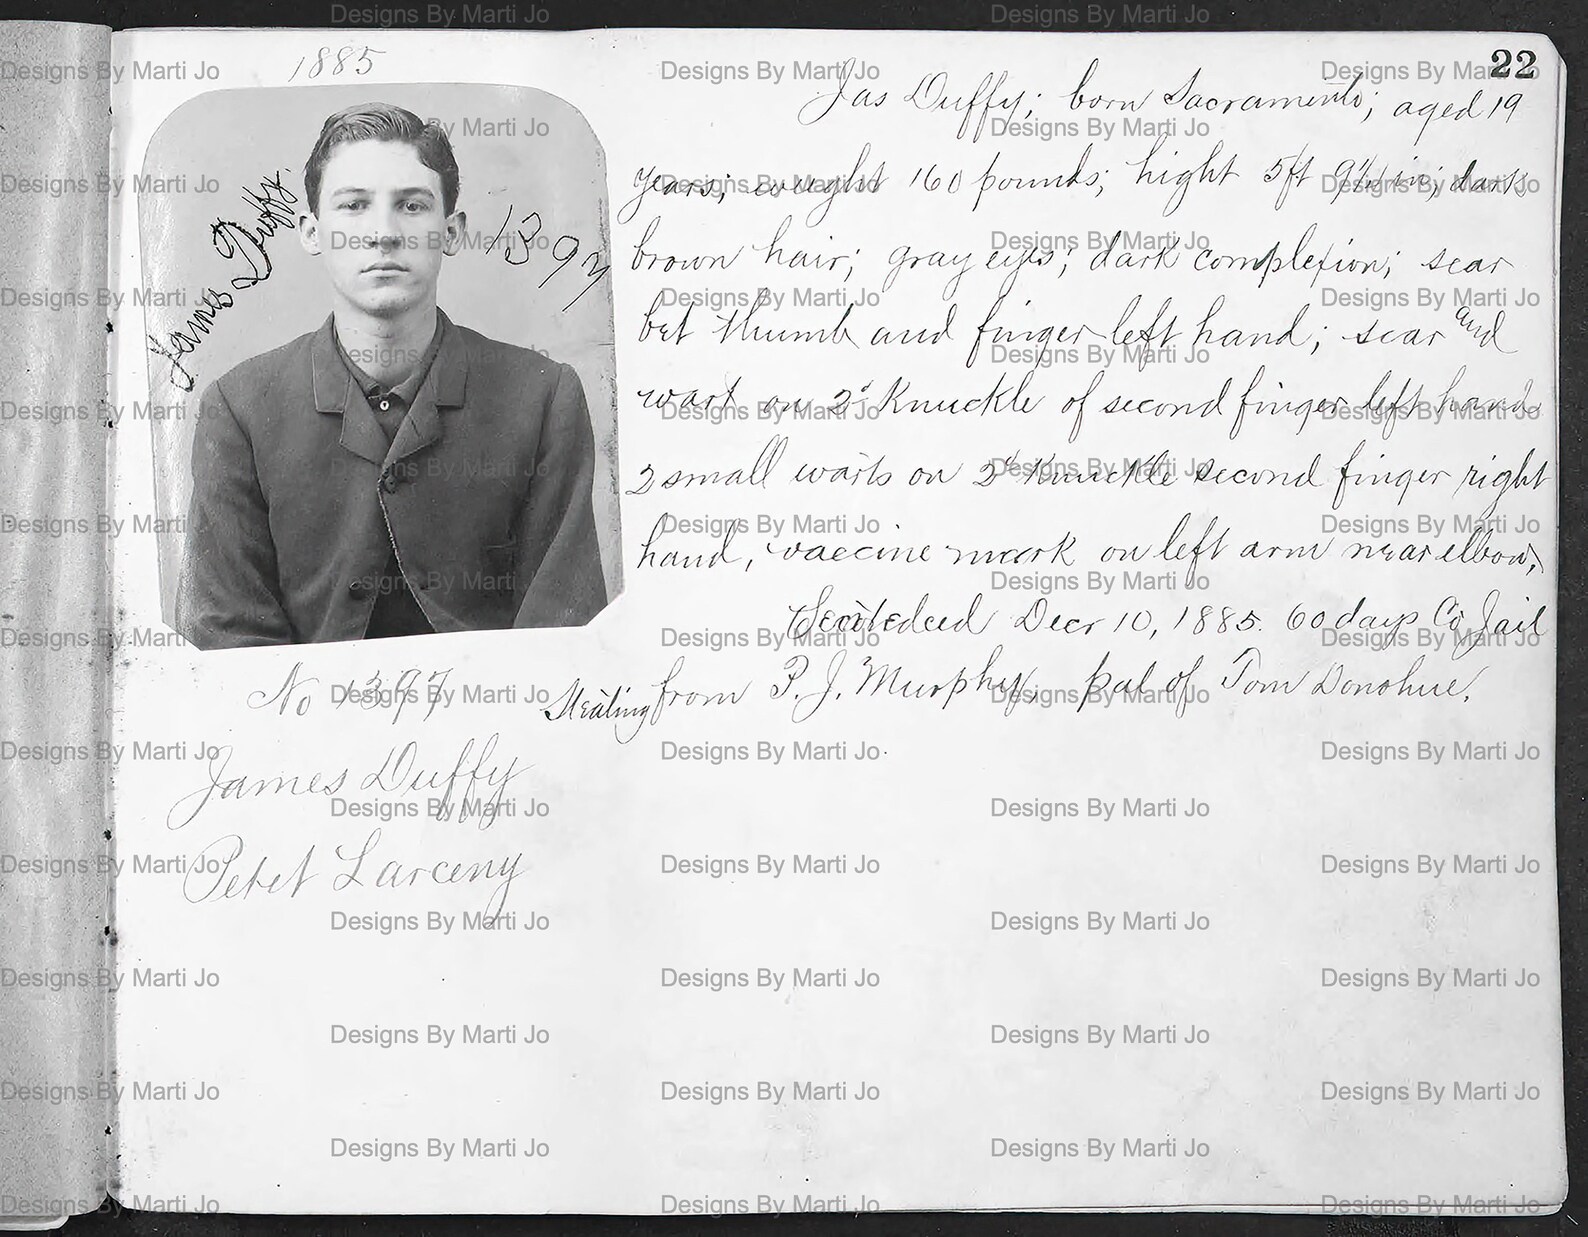 1885
22
James Duffy.
1397
Jas Duffy; born Sacramento; aged 19
years; weught 160 pounds; hight 5ft 9½ in; dark
brown hair; gray eyes; dark complexion; scar
bet thumb and finger left hand; scar and
wart on 2d Knuckle of second finger left hand
2 small warts on 2d Knuckle second finger right
hand, vaccine mark on left arm near elbow,
Decr 10, 1885. 60 days Co Jail
Stealing from P. J. Murphy, pal of Tom Donohue.
No 1397
James Duffy
Petet Larceny
Designs By Marti Jo